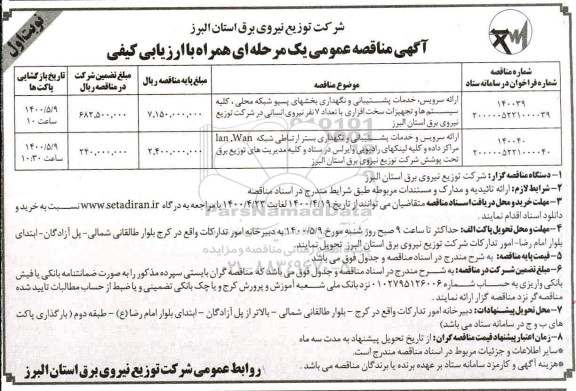 نوبت اول
شرکت توزیع نیروی برق استان البرز
آگهی مناقصه عمومی یک مرحله ای همراه با ارزیابی کیفی
شماره مناقصه
شماره فراخوان در سامانه ستاد
موضوع مناقصه
مبلغ پایه مناقصه ریال
مبلغ تضمین شرکت در مناقصه ریال
تاریخ بازگشایی پاکت ها
۱۴۰۰۳۹
۲۰۰۰۰۰۵۲۲۱۰۰۰۰۳۹
ارائه سرویس، خدمات پشتیبانی و نگهداری بخشهای پسیو شبکه محلی، کلیه
سیستم ها و تجهیزات سخت افزاری با تعداد ۷ نفر نیروی انسانی در شرکت توزیع
نیروی برق استان البرز
۷,۱۵۰,۰۰۰,۰۰۰
۶۸۲,۵۰۰,۰۰۰
۱۴۰۰/۵/۹
ساعت ۱۰
۱۴۰۰۴۰
۲۰۰۰۰۰۵۲۲۱۰۰۰۰۴۰
ارائه سرویس و خدمات پشتیبانی و نگهداری بستر ارتباطی شبکه lan ,Wan
مراکز داده و کلیه لینکهای رادیویی وایرلس در ستاد و کلیه مدیریت های توزیع برق
تحت پوشش شرکت توزیع نیروی برق استان البرز
۲,۴۰۰,۰۰۰,۰۰۰
۲۴۰,۰۰۰,۰۰۰
۱۴۰۰/۵/۹
ساعت ۱۰:۳۰
۱- دستگاه مناقصه گزار: شرکت توزیع نیروی برق استان البرز
۲- شرایط لازم: ارائه تائیدیه و مدارک و مستندات مربوطه طبق شرایط مندرج در اسناد مناقصه
۳- مهلت خرید و محل دریافت اسناد مناقصه: متقاضیان می توانند از تاریخ ۱۴۰۰/۴/۱۹ لغایت ۱۴۰۰/۴/۲۳ با مراجعه به درگاه www.setadiran.ir نسبت به خرید و
دانلود اسناد اقدام نمایند.
۴- مهلت و محل تحویل پاکت الف: حداکثر تا ساعت ۹ صبح روز شنبه مورخ ۱۴۰۰/۵/۹ به دبیرخانه امور تدارکات واقع در کرج بلوار طالقانی شمالی- پل آزادگان-ابتدای
بلوار امام رضا- امور تدارکات شرکت توزیع نیروی برق استان البرز تحویل نمایند.
۵- قیمت پایه مناقصه: به شرح مندرج در اسناد مناقصه و جدول فوق می باشد
۶- مبلغ تضمین شرکت در مناقصه: به شرح مندرج در اسناد مناقصه و جدول فوق می باشد که مناقصه گران بایستی سپرده مذکور را به صورت ضمانتنامه بانکی یا فیش
بانکی واریزی به حساب شماره ۰۱۰۲۷۹۵۱۲۶۰۰۶ نزد بانک ملی شعبه آموزش و پرورش کرج و یا چک بانکی تضمینی و یا ضبط از حساب مطالبات تایید شده
مناقصه گر نزد مناقصه گزار ارائه نمایند.
۷- محل تحویل پیشنهادات: دبیرخانه امور تدارکات واقع در کرج - بلوار طالقانی شمالی - بالاتر از پل آزادگان - ابتدای بلوار امام رضا (ع) - طبقه دوم (بارگذاری پاکت
های ب و ج در سامانه ستاد می باشد)
۸- زمان اعتبار پیشنهاد قیمت مناقصه گران: از تاریخ تحویل پیشنهاد به مدت سه ماه
*سایر اطلاعات و جزئیات مربوط در اسناد مناقصه مندرج است.
*هزینه آگهی و کارمزد سامانه ستاد بر عهده برنده یا برندگان مناقصه می باشد.
روابط عمومی شرکت توزیع نیروی برق استان البرز